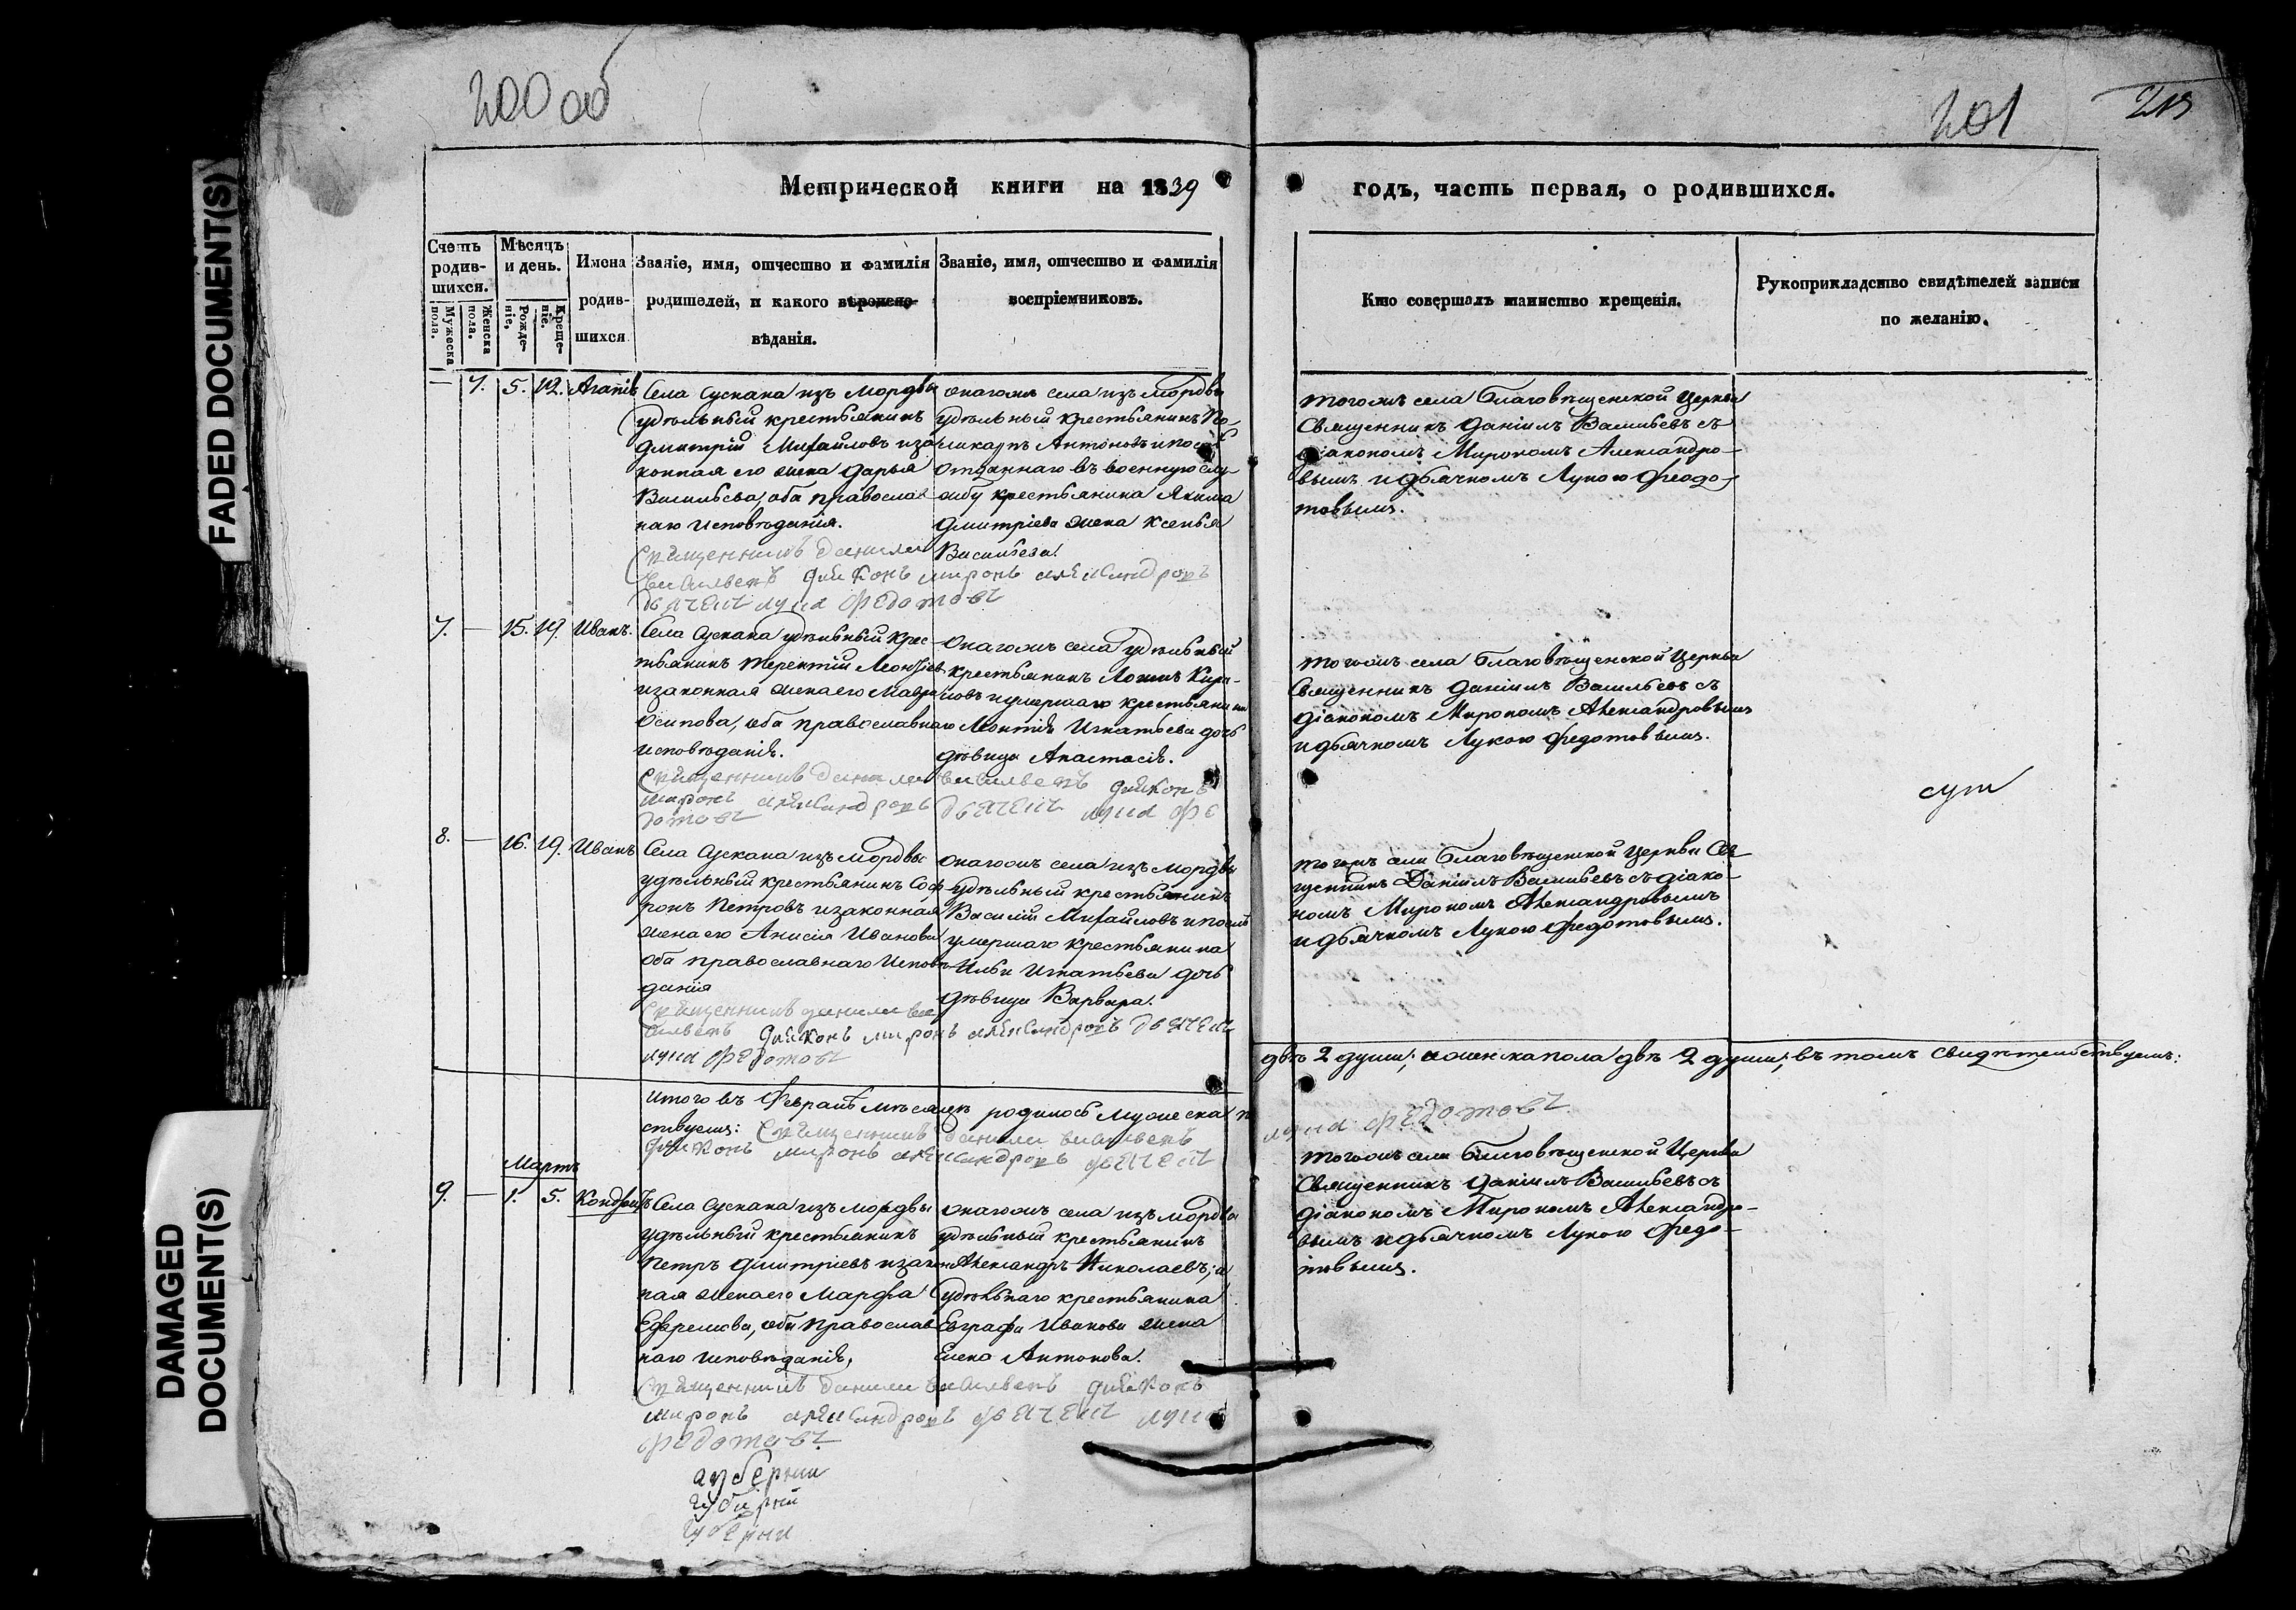 200 об
201
213
Метрической книги на 1839
годъ, часть первая, о родившихся.
Счетъ родившихся.
Мужеска пола.
Женска пола.
Мѣсяцъ и день.
Рожденіе.
Крещеніе.
Имена родившихся
Званіе, имя, отчество и фамилія
родителей, и какого вѣроиспо-
вѣданія.
Званіе, имя, отчество и фамилія
воспріемниковъ.
Кто совершалъ таинство крещенія.
Рукоприкладство свидѣтелей записи
по желанію.
— 7. 5. 12. Агапія
Села Сускана изъ Мордвы
удѣльный крестьянинъ
Димитрій Михайловъ и за
конная его жена Дарья
Васильева, оба православ
наго исповѣданія.
Священникъ Данила
Васильевъ Дияконъ миронъ александровъ
дьячекъ лука федотовъ
онагожъ села изъ Мордвы
удѣльный крестьянинъ По-
ликарпъ Антоновъ и
отданнаго въ военную слу-
жбу крестьянина Якима
Дмитріева жена Ксенья
Васильева
тогожъ села Благовѣщенской Церкви
Священникъ Даніилъ Васильевъ съ
діакономъ Мирономъ Александро-
вымъ и дьячкомъ Лукою Федо-
товымъ.
7. — 15. 19. Иванъ.
Села Сускана удѣльный крес-
тьянинъ Терентій Леонтьев
и законная жена его Мавра
Осипова, оба православнаго
исповѣданія.
Священникъ Данила Васильевъ Дияконъ
миронъ александровъ дьячекъ лука фе
дотовъ
Онагожъ села удѣльный
крестьянинъ Логинъ Кири-
ловъ и умершаго крестьянина
Леонтія Игнатьева дочь
дѣвица Анастасія.
тогожъ села Благовѣщенской Церкви
Священникъ Даніилъ Васильевъ съ
діакономъ Мирономъ Александровымъ
и дьячкомъ Лукою Федотовымъ.
8. — 16. 19. Иванъ
Села Сускана изъ Мордвы
удѣльный крестьянинъ Соф
ронъ Петровъ и законная
жена его Анисия Иванова
оба православнаго исповѣ-
данія
Священникъ данила ва
сильевъ Дияконъ миронъ александровъ дьячекъ
лука федотовъ
онагожъ села изъ Мордвы
удѣльный крестьянинъ
Василій Михайловъ и
умершаго крестьянина
Ильи Игнатьева дочь
дѣвица Варвара.
тогожъ села Благовѣщенской Церкви Свя
щенникъ Даніилъ Васильевъ съ діако-
номъ Мирономъ Александровымъ
и дьячкомъ Лукою Федотовымъ.
Итого въ Февралѣ мѣсяцѣ родилось мужеска п
двѣ 2 души, а женска пола двѣ 2 души, въ томъ свидѣтельствуемъ:
ствуемъ: Священникъ Данила васильевъ
Дияконъ миронъ александровъ дьячекъ
лука федотовъ
Мартъ
9. — 1. 5. Кондратъ
Села Сускана изъ Мордвы
удѣльный крестьянинъ
Петръ Дмитріевъ и закон
ная жена его Марфа
Ефремова, оба православ
наго исповѣданія,
Священникъ данила васильевъ Дияконъ
миронъ александровъ дьячекъ лука
федотовъ
онагожъ села изъ мордвы
удѣльный крестьянинъ
Александръ Николаевъ, и
удѣльнаго крестьянина
Евграфа Иванова жена
Елена Антонова.
тогожъ села Благовѣщенской Церкви
Священникъ Даніилъ Васильевъ съ
діакономъ Мирономъ Александро-
вымъ и дьячкомъ Лукою Федо-
товымъ.
губерни
FADED DOCUMENT(S)
DAMAGED DOCUMENT(S)